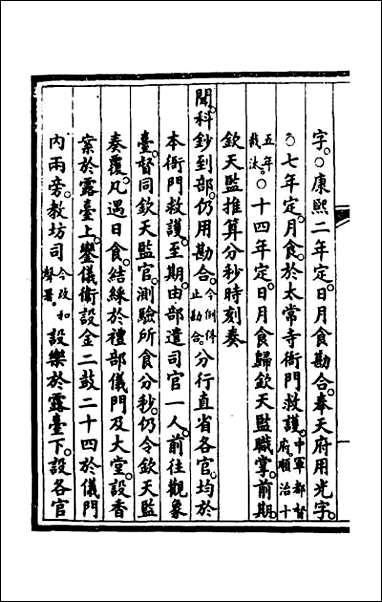 字。○康熙二年定。日月食勘合。奉天府用光字。
○七年定。月食。於太常寺衙門救護。中軍都督府。順治十
五年裁汰。○十四年定。日月食歸欽天監職掌。前期。
欽天監推算分秒時刻奏
聞。科鈔到部。仍用勘合。今例停止勘合。分行直省各官。均於
本衙門救護。至期。由部遣司官一人。前往觀象
臺。督同欽天監官。測驗所食分秒。仍令欽天監
奏覆。凡遇日食。結綵於禮部儀門及大堂。設香
案於露臺上。鑾儀衛設金二鼓二十四於儀門
內兩旁。教坊司今改和聲署。設樂於露臺下。設各官